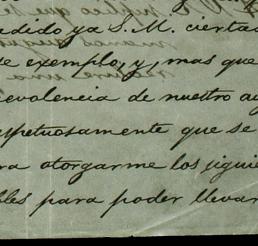 edido ya S. M. ciertas
e exemplo, y, mas que
evolencia de nuestro au
spetuosamente que se
ra otorgarme los siguie
bles para poder llevar